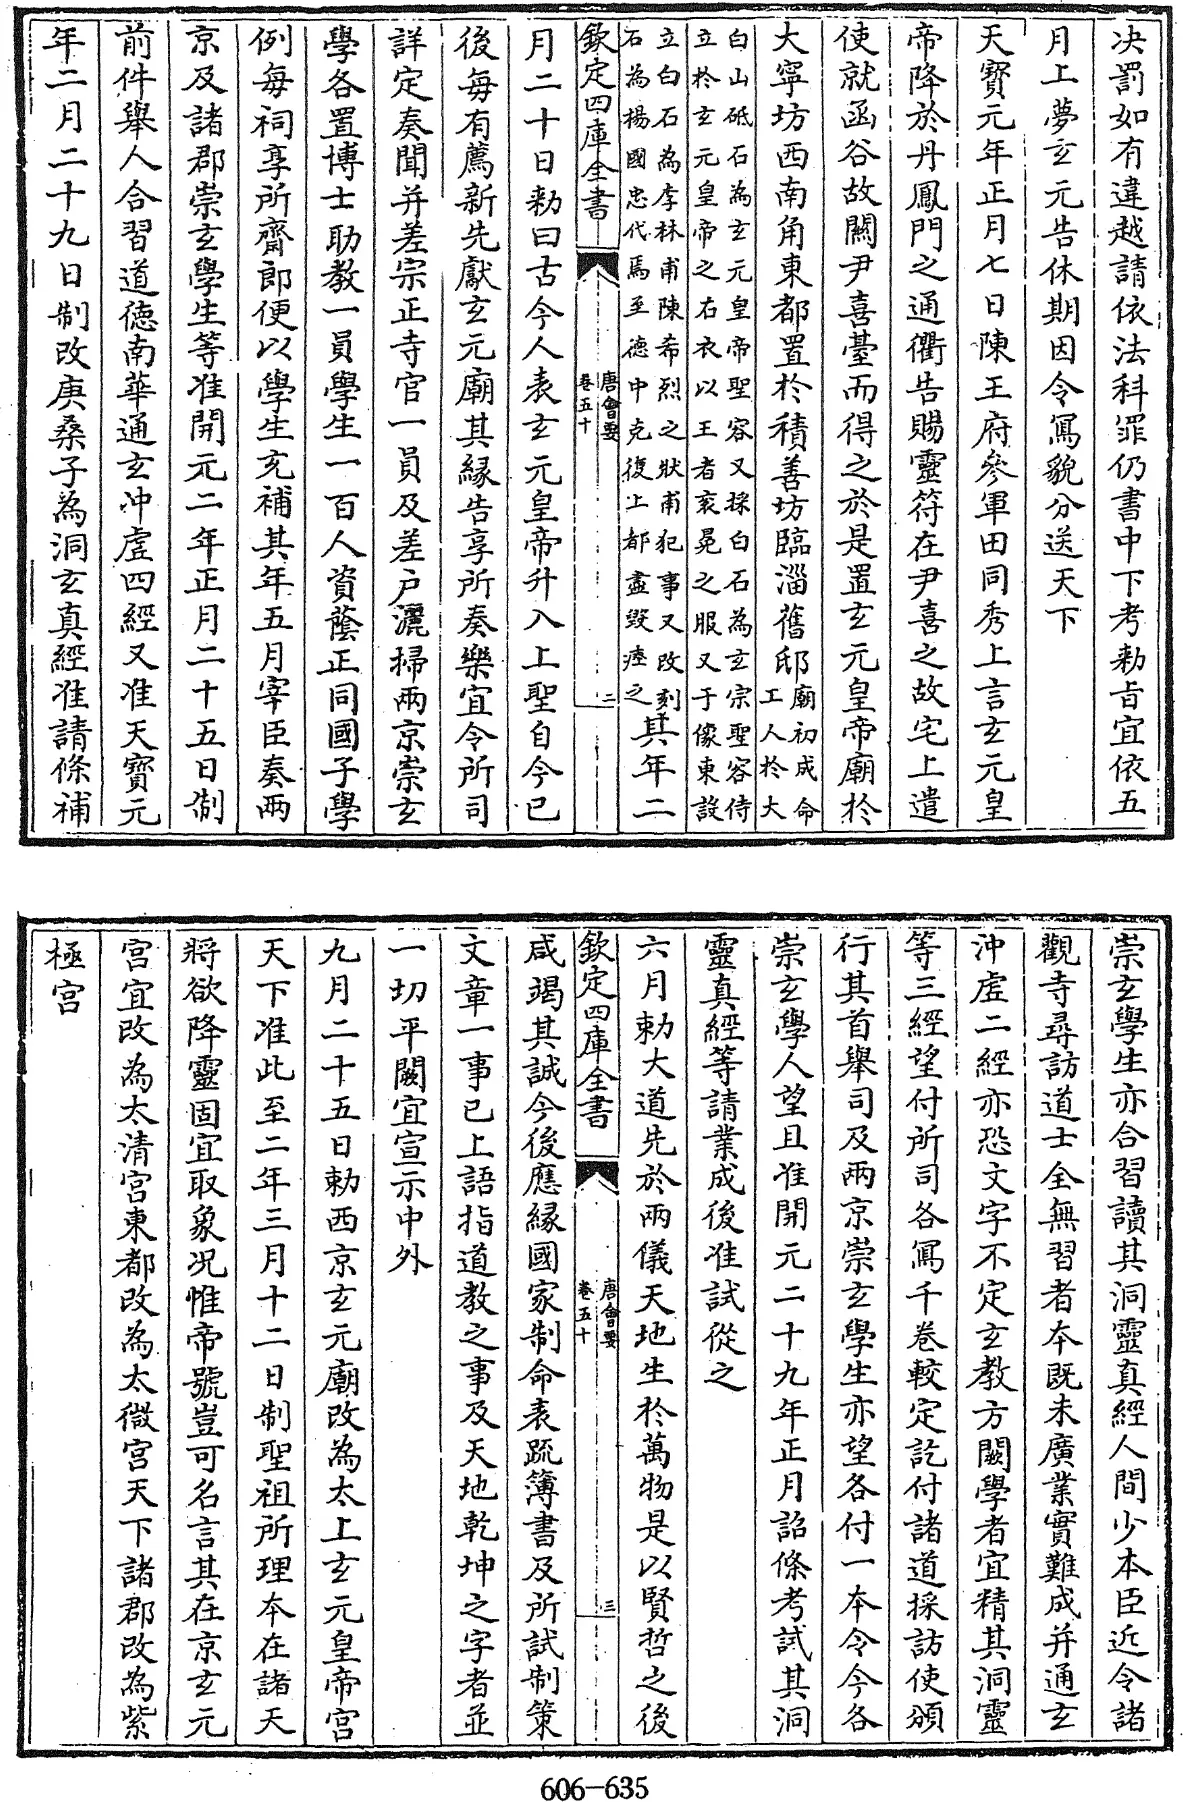 决罰如有違越請依法科罪仍書中下考勅旨宜依五
月上夢玄元告休期因令寫貌分送天下
天寶元年正月七日陳王府參軍田同秀上言玄元皇
帝降於丹鳳門之通衢告賜靈符在尹喜之故宅上遣
使就函谷故關尹喜臺而得之於是置玄元皇帝廟於
大寧坊西南角東都置於積善坊臨淄舊邸廟初成命
工人於大
白山砥石為玄元皇帝聖容又採白石為玄宗聖容侍
立於玄元皇帝之右衣以王者衮冕之服又于像東設
立白石為李林甫陳希烈之狀甫犯事又改刻
石為楊國忠代焉至德中克復上都盡毁瘞之
其年二
欽定四庫全書
唐會要
卷五十
二
月二十日勅曰古今人表玄元皇帝升入上聖自今已
後毎有薦新先獻玄元廟其緣告享所奏樂宜令所司
詳定奏聞并差宗正寺官一員及差户灑掃兩京崇玄
學各置博士助教一員學生一百人資蔭正同國子學
例每祠享所齋郎便以學生充補其年五月宰臣奏兩
京及諸郡崇玄學生等准開元二年正月二十五日制
前件舉人合習道德南華通玄沖虚四經又准天寶元
年二月二十九日制改庚桑子為洞玄真經准請條補
崇玄學生亦合習讀其洞靈真經人間少本臣近令諸
觀寺尋訪道士全無習者本既未廣業實難成并通玄
沖虚二經亦恐文字不定玄教方闡學者宜精其洞靈
等三經望付所司各寫千卷較定訖付諸道採訪使頒
行其首舉司及兩京崇玄學生亦望各付一本令今各
崇玄學人望且准開元二十九年正月詔條考試其洞
靈真經等請業成後准試從之
六月勅大道先於兩儀天地生於萬物是以賢哲之後
欽定四庫全書
唐會要
卷五十
三
咸竭其誠今後應緣國家制命表疏簿書及所試制策
文章一事已上語指道教之事及天地乾坤之字者並
一切平闕宜宣示中外
九月二十五日勅西京玄元廟改為太上玄元皇帝宮
天下准此至二年三月十二日制聖祖所理本在諸天
將欲降靈固宜取象况惟帝號豈可名言其在京玄元
宮宜改為太清宮東都改為太微宮天下諸郡改為紫
極宮
606-635